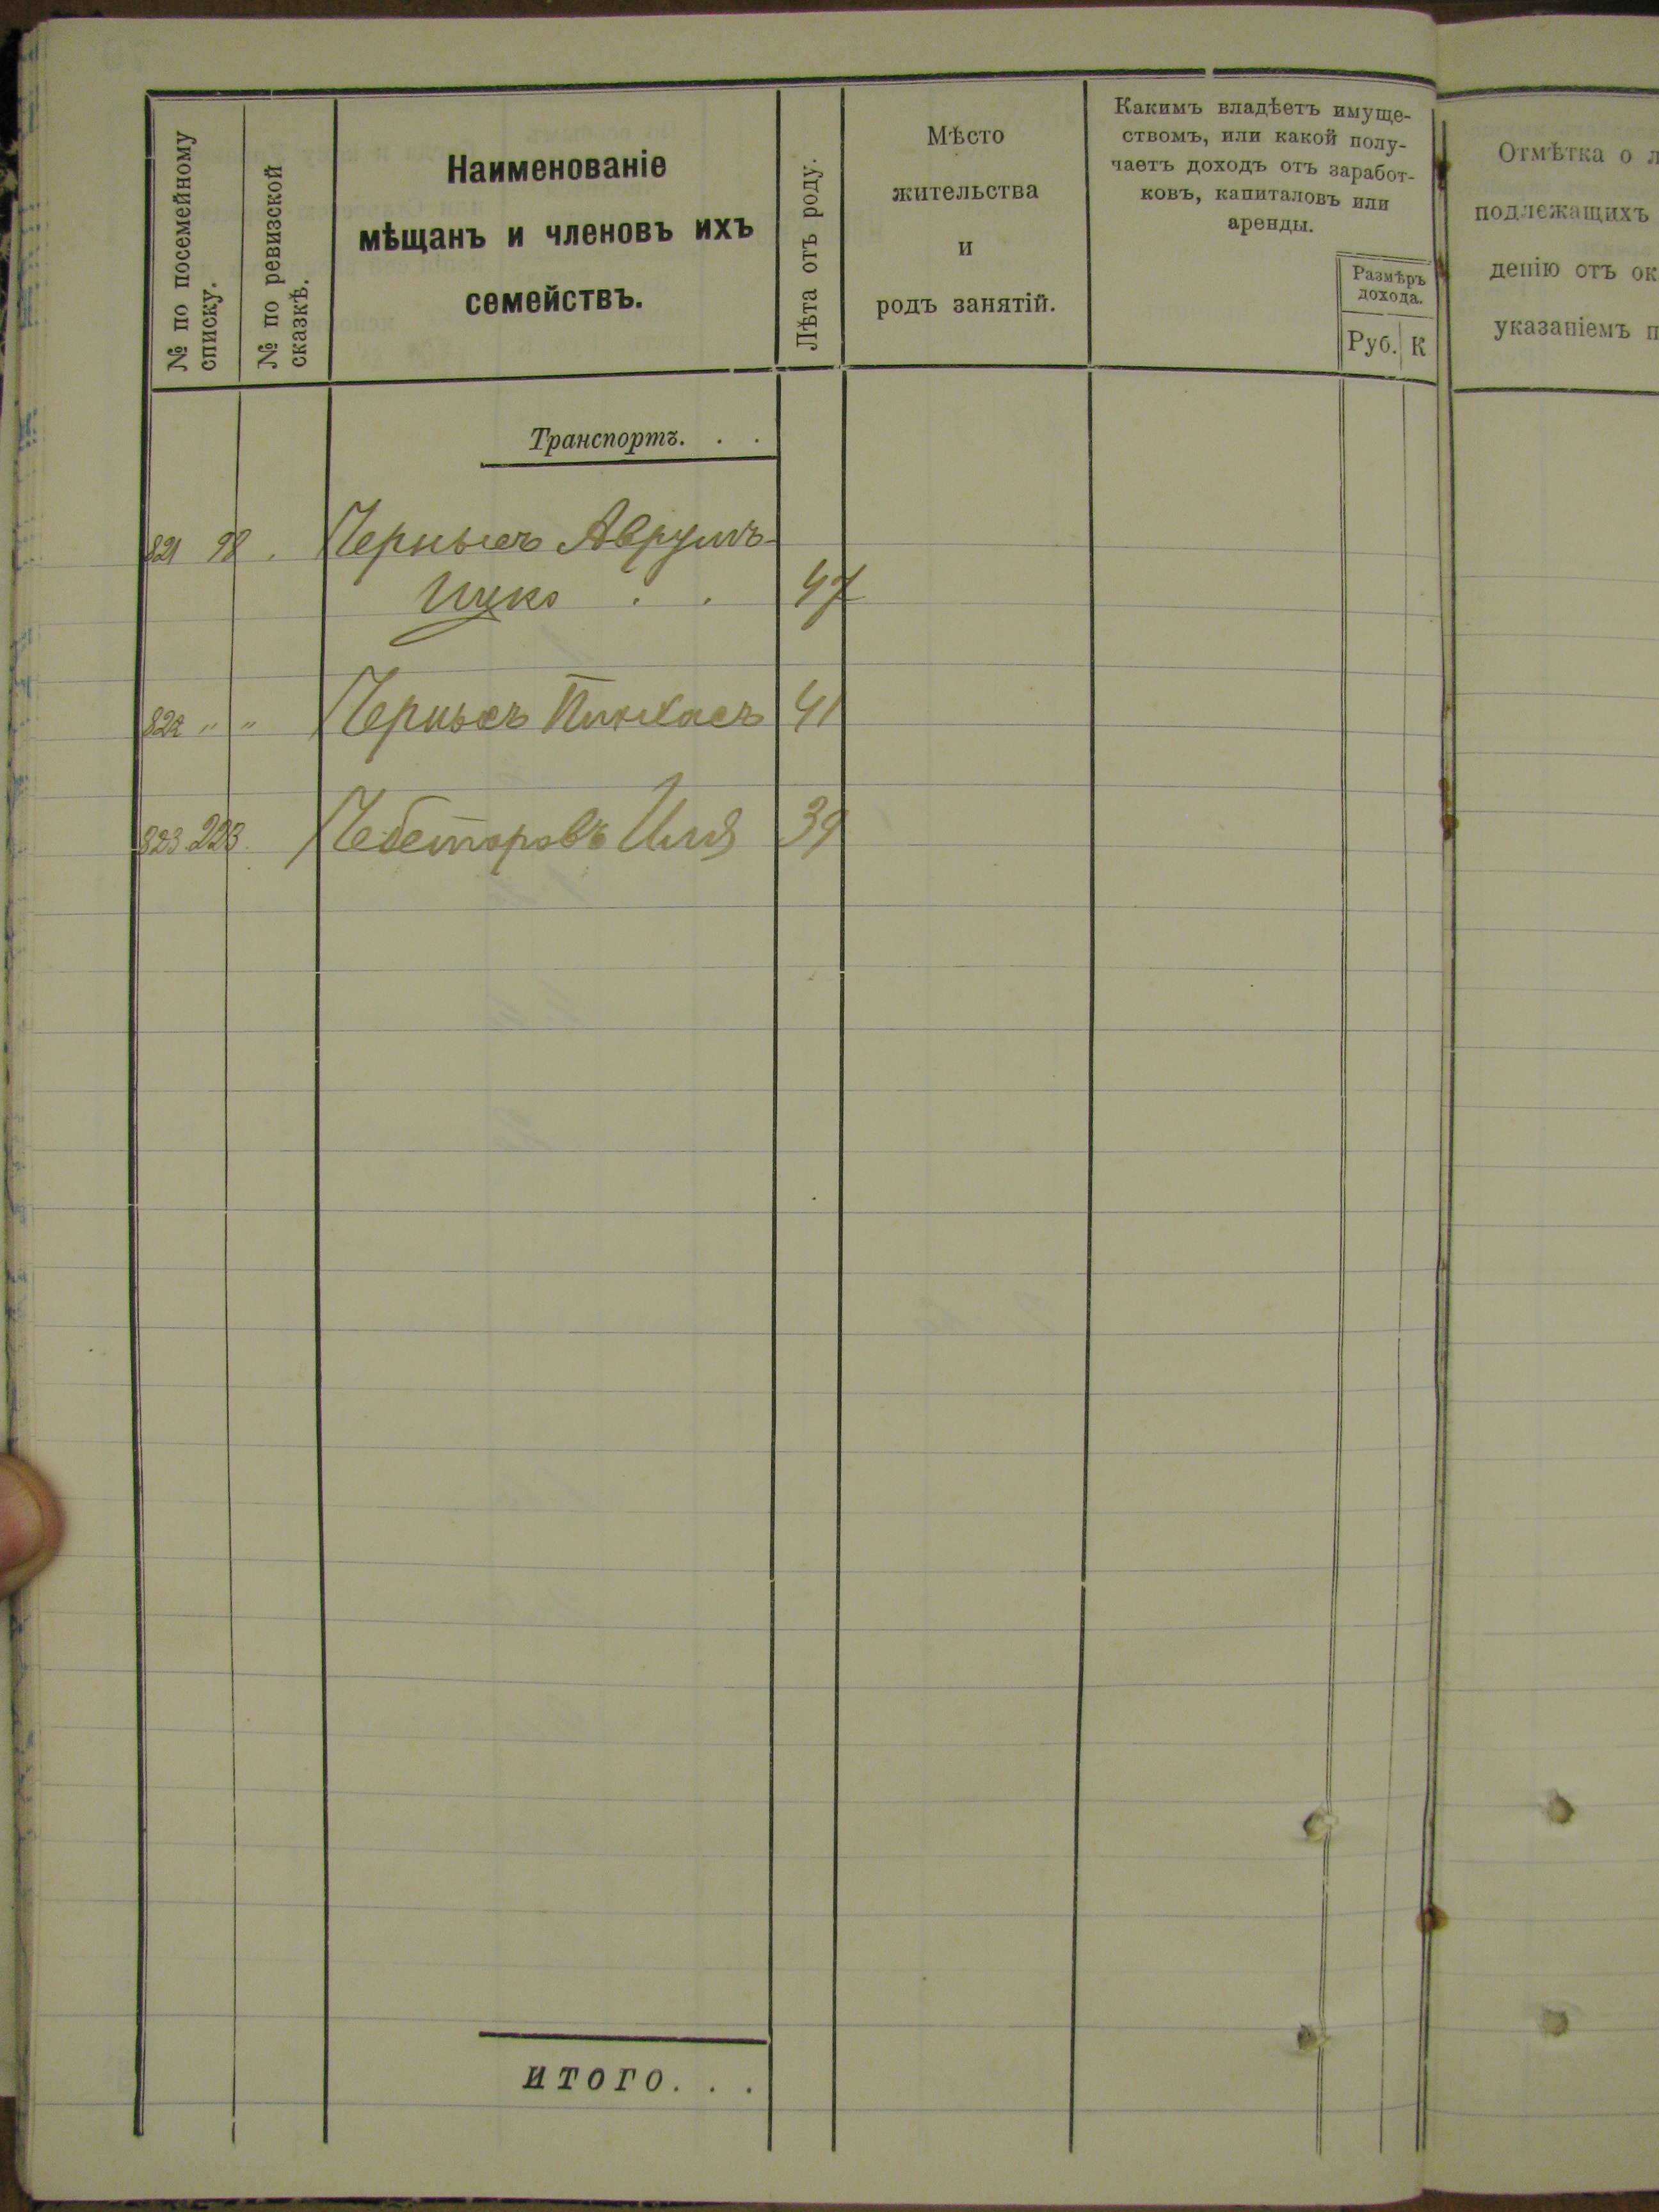 № по посемейному
списку.
№ по ревизской
сказкѣ.
Наименованіе
мѣщанъ и членовъ ихъ
семействъ.
Лѣта отъ роду.
Мѣсто
жительства
и
родъ занятій.
Какимъ владѣетъ имуще-
ствомъ, или какой полу-
чаетъ доходъ отъ заработ-
ковъ, капиталовъ или
аренды.
Размѣръ
дохода.
Руб. К
Отмѣтка о л
подлежащихъ
денію отъ ок
указаніемъ п
Транспортъ. . .
821 98. Черныхъ Аврумъ-
Ицко . . 47
822 " " Черныхъ Пинхасъ 41
823 223. Чеботоровъ Илья 39
итого. . .